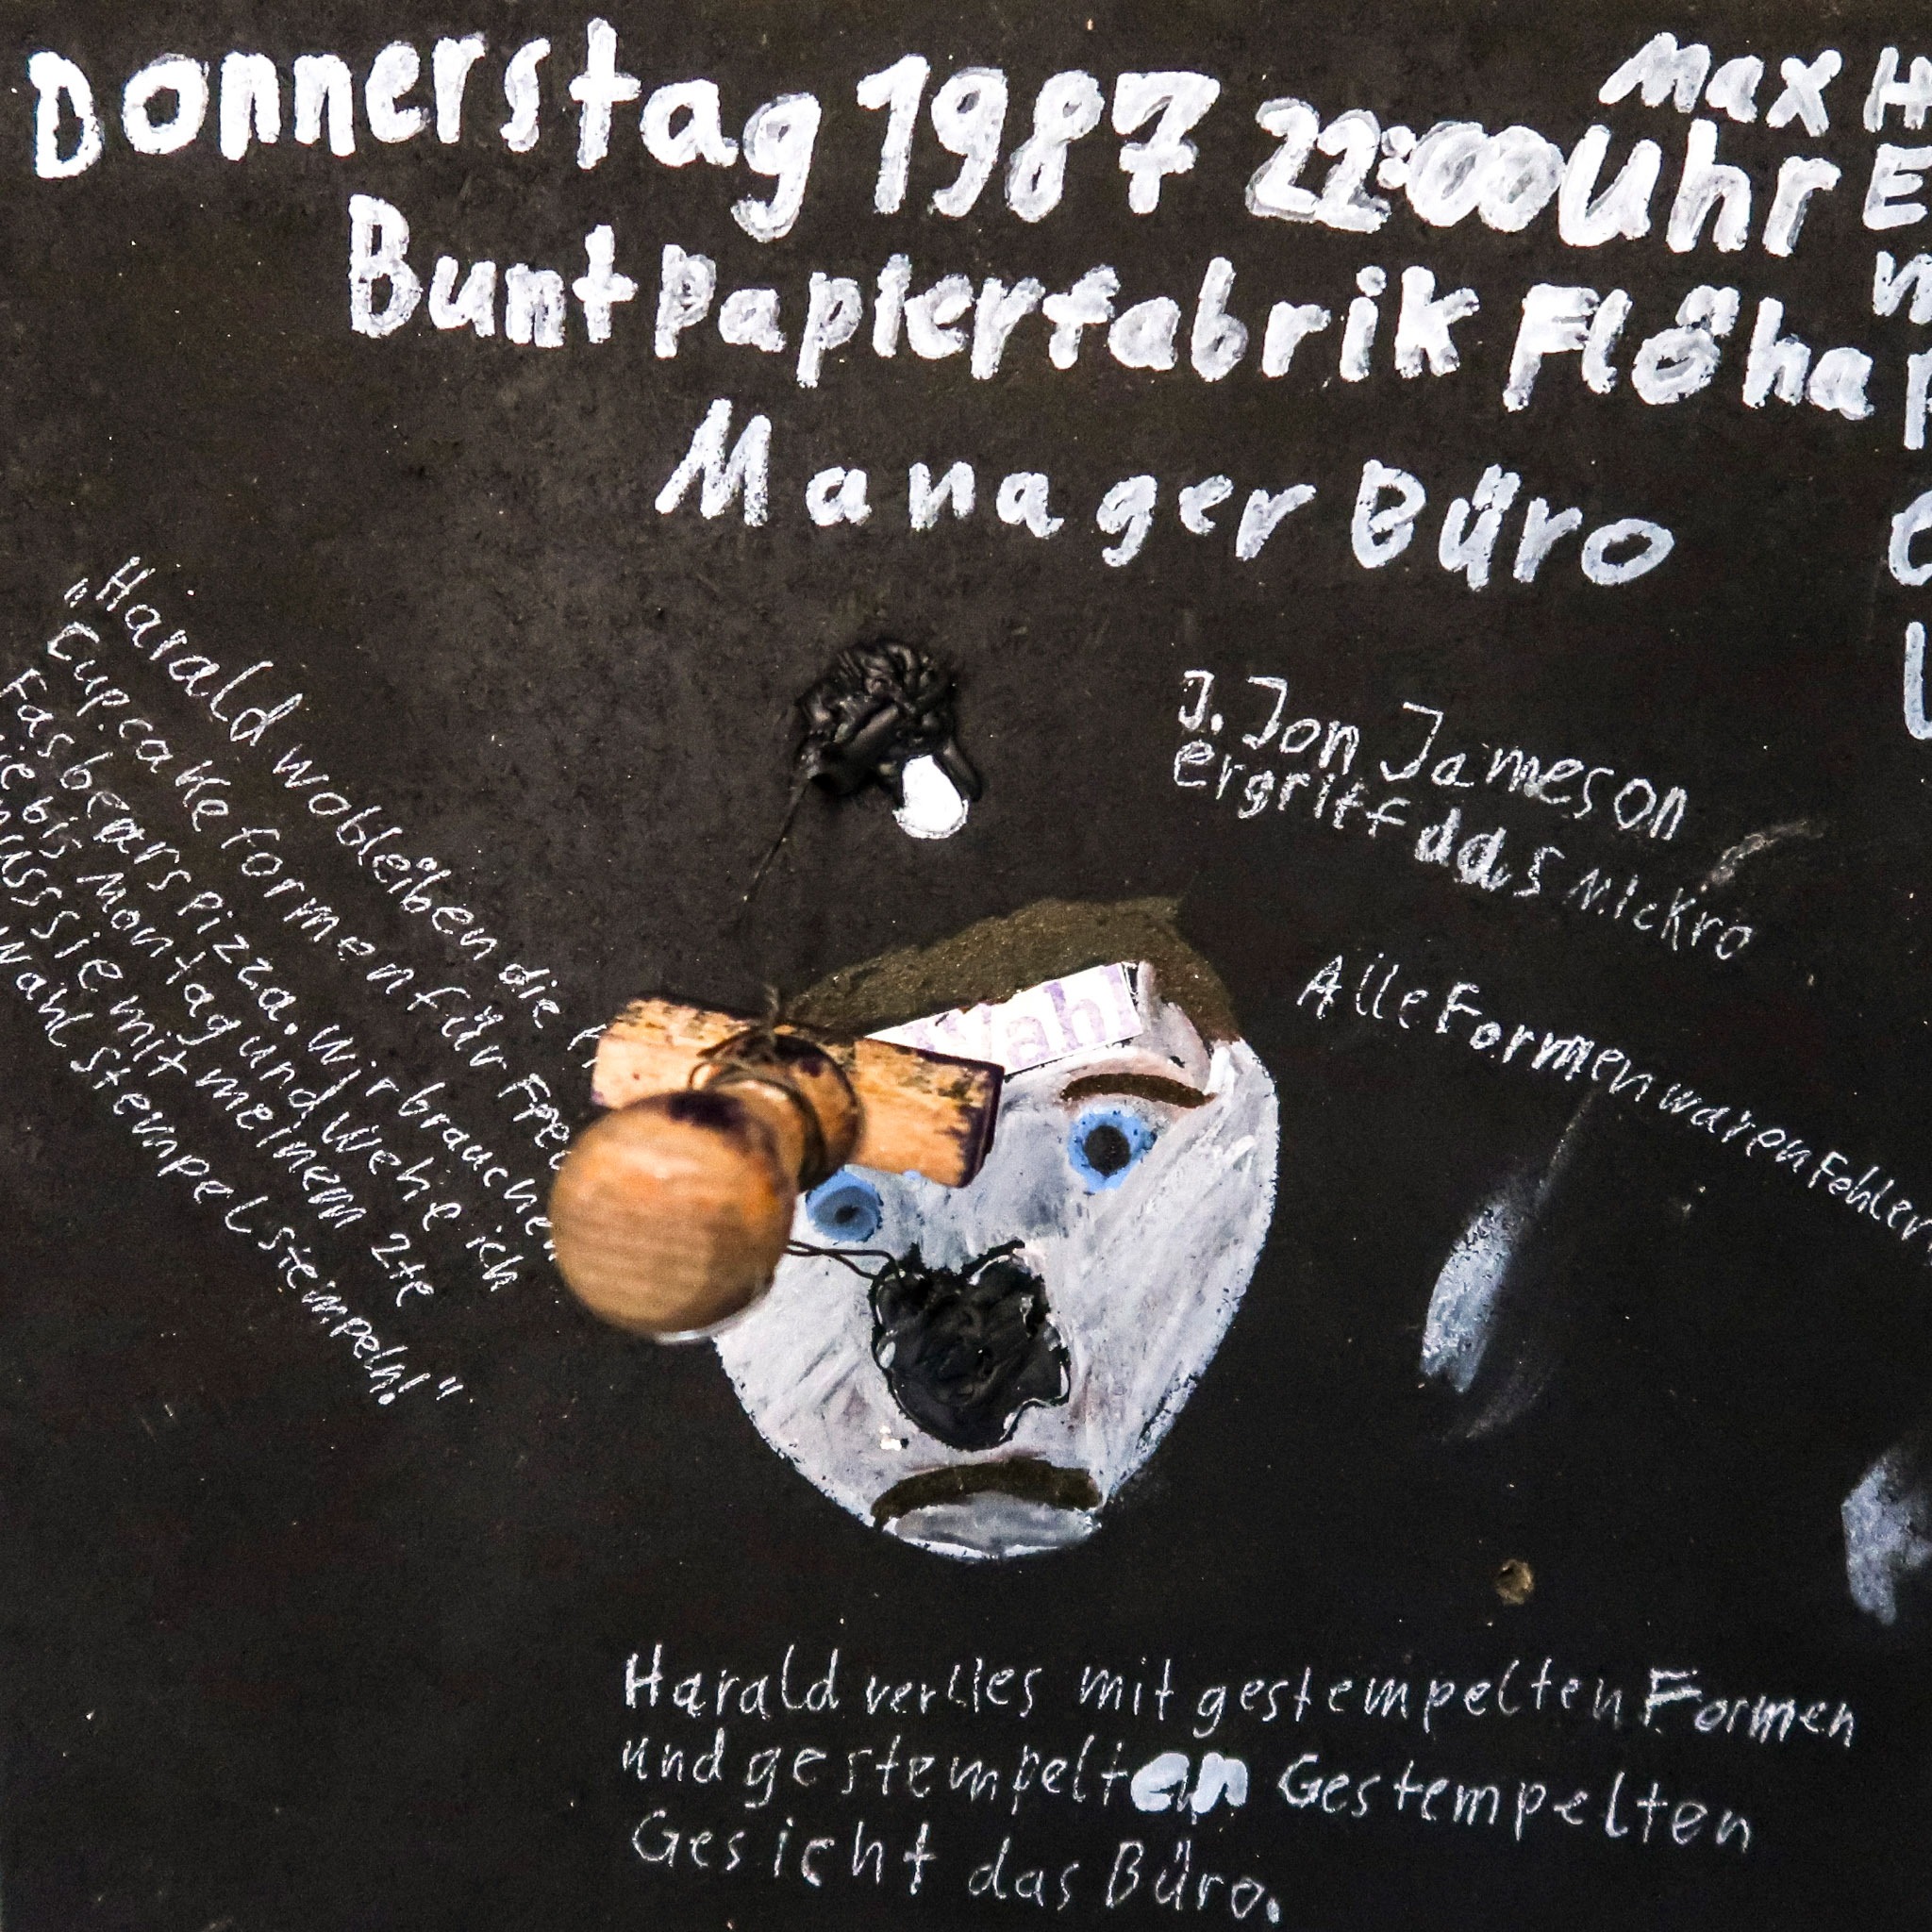 Donnerstag 1987 22:00 Uhr
Buntpapierfabrik Flöha
Manager Büro
Max H
E
„Harald wo bleiben die
Cupcake Formen für
Fasbears Pizza. Wir brauchen
bis Montag und Wehe ich
muss sie mit meinem 2te
Wahl stempel stempeln!"
J. Jon Jameson
ergriff das Mickro
Alle Formen waren Fehler
Wahl
Harald verlies mit gestempelten Formen
und gestempelten Gestempelten
Gesicht das Büro.